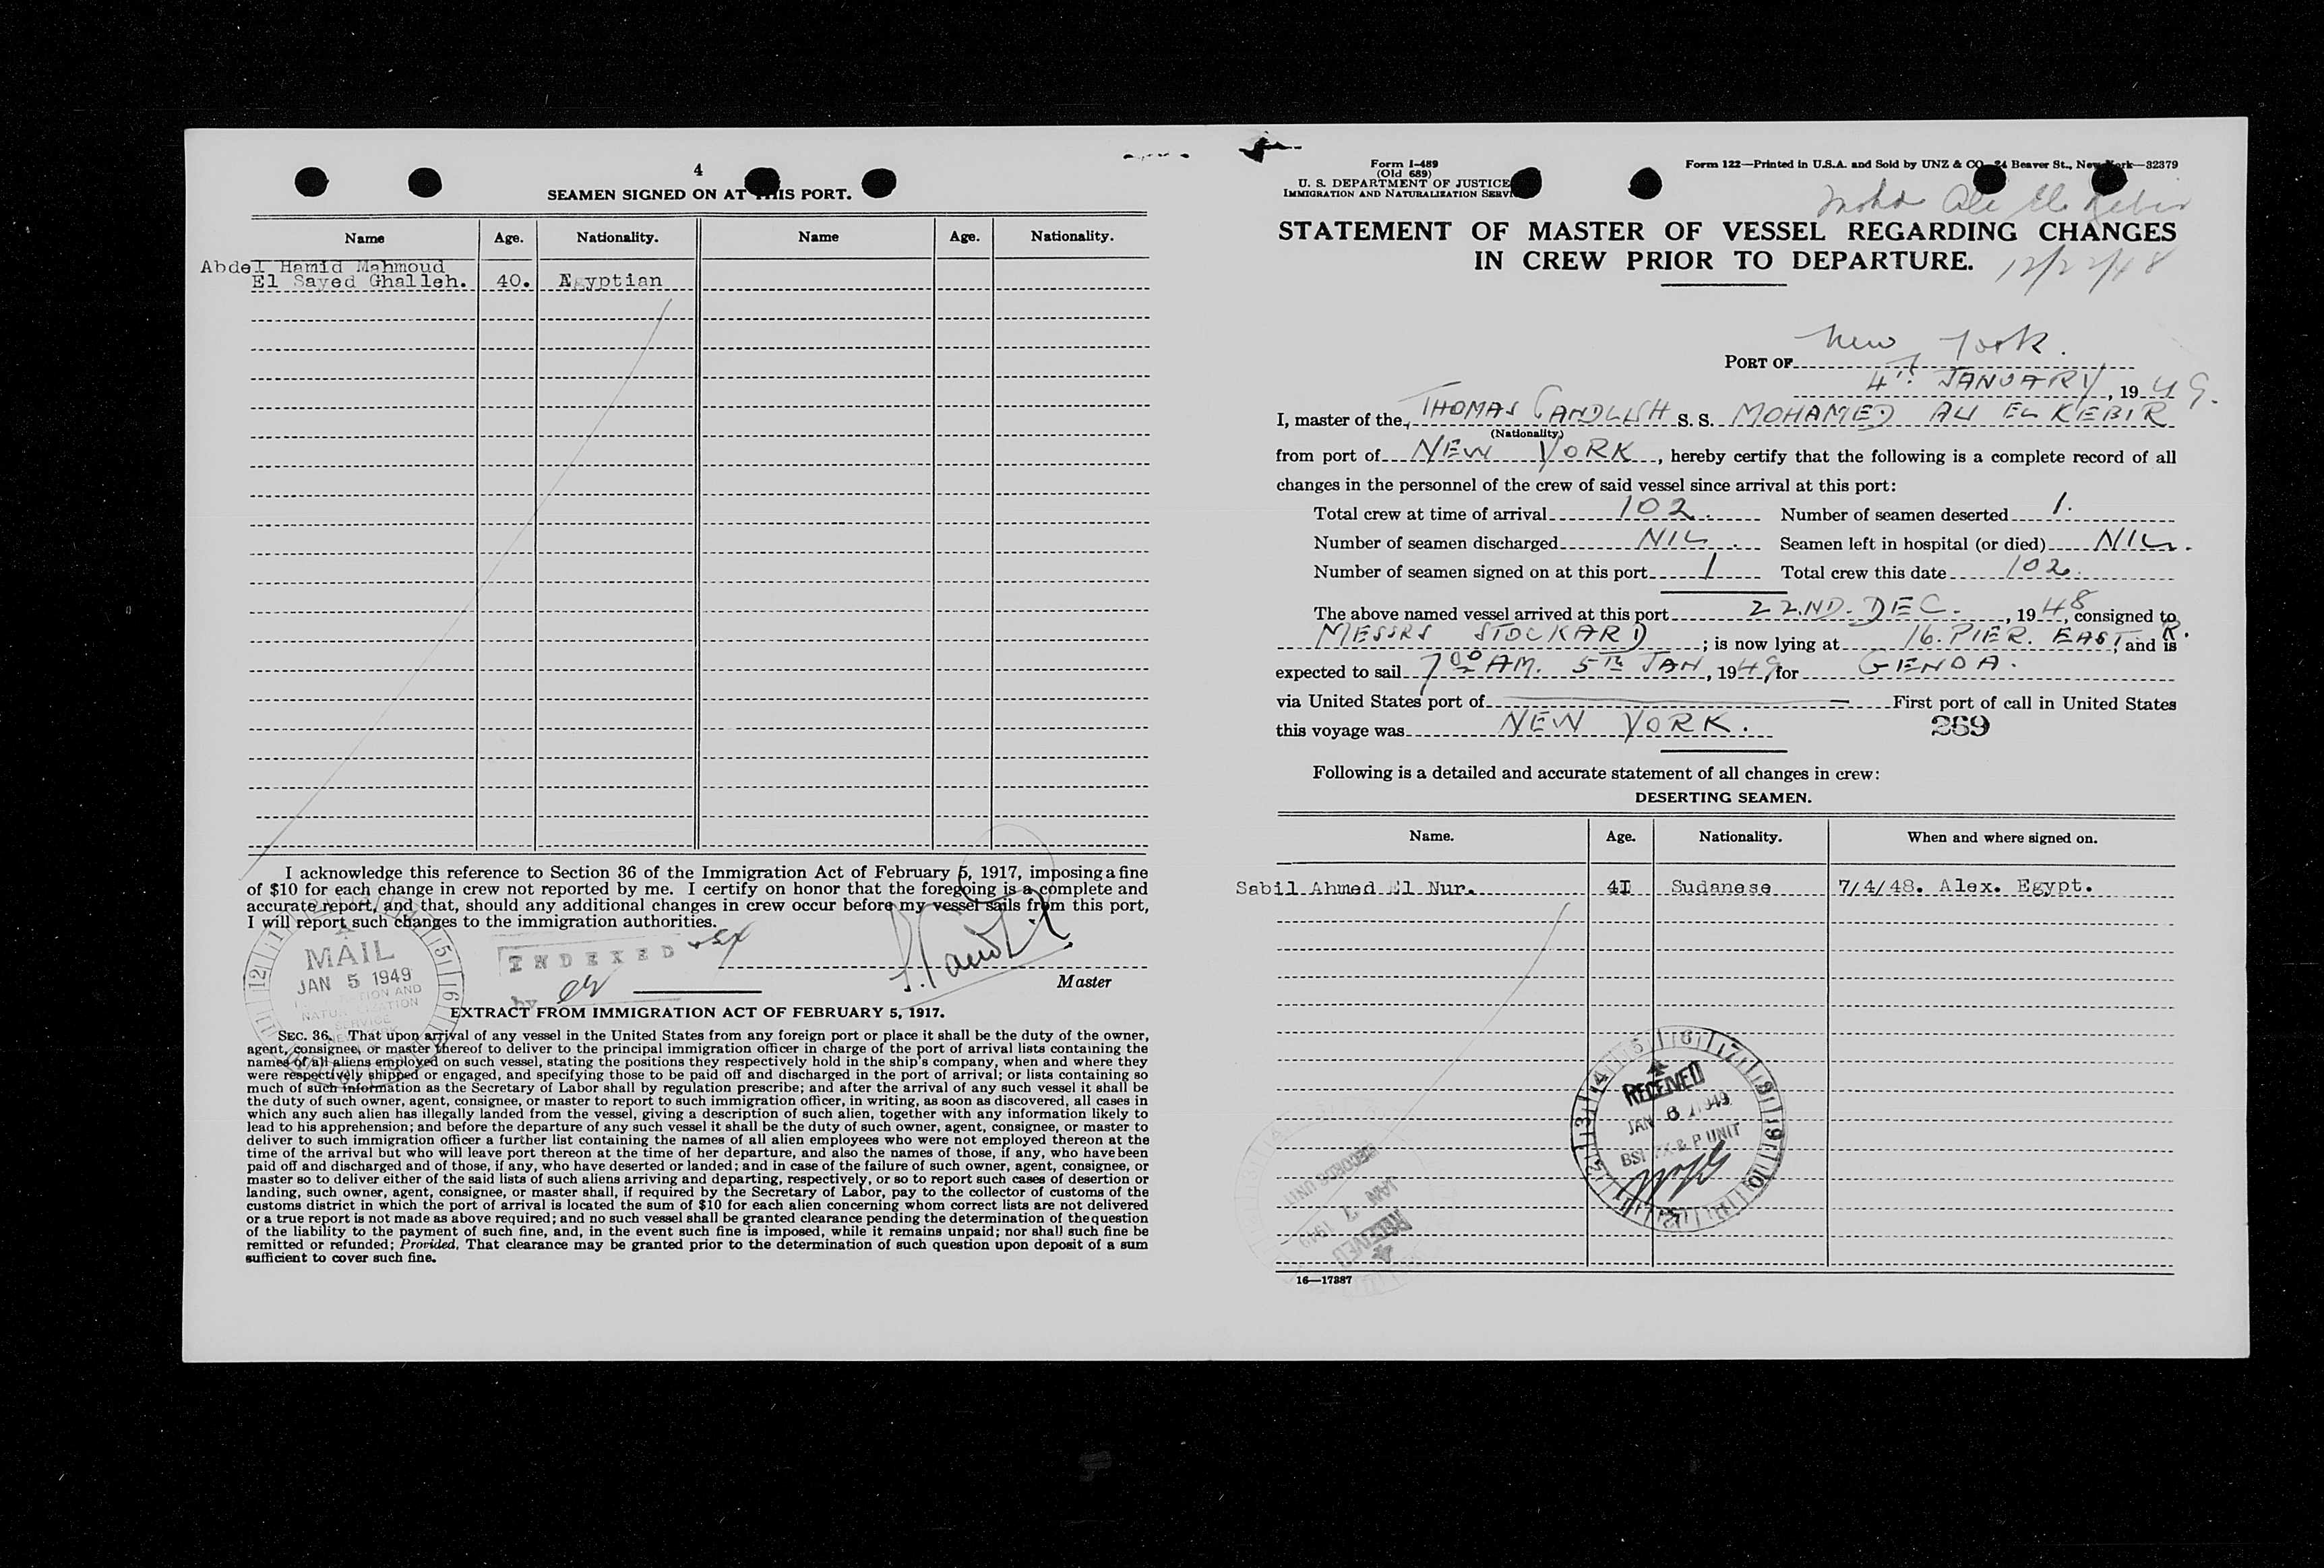 4
SEAMEN SIGNED ON AT THIS PORT.
Name Age. Nationality. Name Age. Nationality.
Abdel Hamid Mahmoud
El Sayed Ghalleh. 40. Egyptian
I acknowledge this reference to Section 36 of the Immigration Act of February 5, 1917, imposing a fine
of $10 for each change in crew not reported by me. I certify on honor that the foregoing is a complete and
accurate report, and that, should any additional changes in crew occur before my vessel sails from this port,
I will report such changes to the immigration authorities.
MAIL
JAN 5 1949
INDEXED
by
Master
EXTRACT FROM IMMIGRATION ACT OF FEBRUARY 5, 1917.
SEC. 36. That upon arrival of any vessel in the United States from any foreign port or place it shall be the duty of the owner,
agent, consignee, or master thereof to deliver to the principal immigration officer in charge of the port of arrival lists containing the
names of all aliens employed on such vessel, stating the positions they respectively hold in the ship's company, when and where they
were respectively shipped or engaged, and specifying those to be paid off and discharged in the port of arrival; or lists containing so
much of such information as the Secretary of Labor shall by regulation prescribe; and after the arrival of any such vessel it shall be
the duty of such owner, agent, consignee, or master to report to such immigration officer, in writing, as soon as discovered, all cases in
which any such alien has illegally landed from the vessel, giving a description of such alien, together with any information likely to
lead to his apprehension; and before the departure of any such vessel it shall be the duty of such owner, agent, consignee, or master to
deliver to such immigration officer a further list containing the names of all alien employees who were not employed thereon at the
time of the arrival but who will leave port thereon at the time of her departure, and also the names of those, if any, who have been
paid off and discharged and of those, if any, who have deserted or landed; and in case of the failure of such owner, agent, consignee, or
master so to deliver either of the said lists of such aliens arriving and departing, respectively, or so to report such cases of desertion or
landing, such owner, agent, consignee, or master shall, if required by the Secretary of Labor, pay to the collector of customs of the
customs district in which the port of arrival is located the sum of $10 for each alien concerning whom correct lists are not delivered
or a true report is not made as above required; and no such vessel shall be granted clearance pending the determination of the question
of the liability to the payment of such fine, and, in the event such fine is imposed, while it remains unpaid; nor shall such fine be
remitted or refunded; Provided, That clearance may be granted prior to the determination of such question upon deposit of a sum
sufficient to cover such fine.
Form I-489
(Old 689)
U. S. DEPARTMENT OF JUSTICE
IMMIGRATION AND NATURALIZATION SERVICE
Form 122—Printed in U.S.A. and Sold by UNZ & CO., 24 Beaver St., New York—32379
Mohd Ali El Kebir
STATEMENT OF MASTER OF VESSEL REGARDING CHANGES
IN CREW PRIOR TO DEPARTURE.
12/22/48
PORT OF New York.
4th JANUARY, 1949.
I, master of the THOMAS CANDLISH S. S. MOHAMED ALI EL KEBIR
(Nationality)
from port of NEW YORK, hereby certify that the following is a complete record of all
changes in the personnel of the crew of said vessel since arrival at this port:
Total crew at time of arrival 102. Number of seamen deserted 1.
Number of seamen discharged NIL. Seamen left in hospital (or died) NIL.
Number of seamen signed on at this port 1 Total crew this date 102.
The above named vessel arrived at this port 22.ND. DEC., 1948, consigned to
MESSRS STOCKARD; is now lying at 16. PIER. EAST R., and is
expected to sail 7 00 AM. 5TH JAN, 1949, for GENOA.
via United States port of First port of call in United States
this voyage was NEW YORK.
269
Following is a detailed and accurate statement of all changes in crew:
DESERTING SEAMEN.
Name. Age. Nationality. When and where signed on.
Sabil Ahmed El Nur. 4I Sudanese 7/4/48. Alex. Egypt.
RECEIVED
JAN 6 1949
BSI EX & P UNIT
RECORDS UNIT
JAN 7 1949
RECEIVED
16—17887